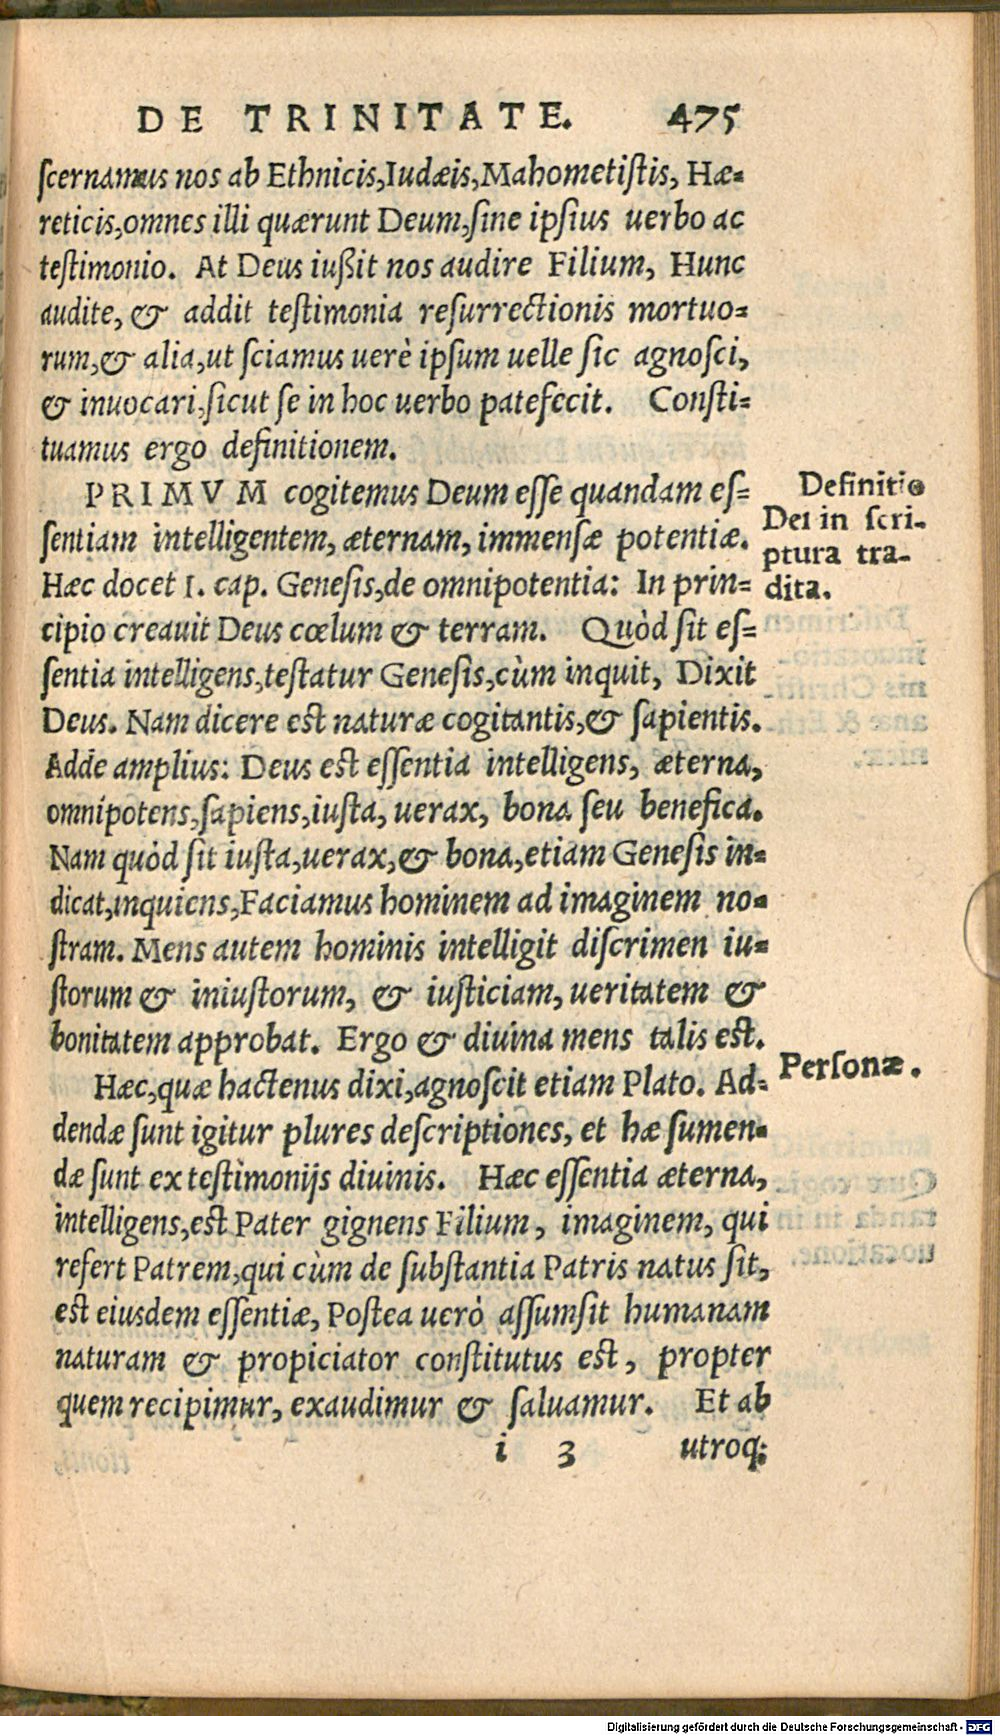 DE TRINITATE. 475
ſcernamus nos ab Ethnicis,Iudæis,Mahometiſtis, Hæ-
reticis,omnes illi quærunt Deum,ſine ipſius uerbo ac
teſtimonio. At Deus iußit nos audire Filium, Hunc
audite, & addit teſtimonia reſurrectionis mortuo-
rum,& alia,ut ſciamus uerè ipſum uelle ſic agnoſci,
& inuocari,ſicut ſe in hoc uerbo patefecit. Conſti-
tuamus ergo definitionem.
PRIMVM cogitemus Deum eſſe quandam eſ-
ſentiam intelligentem, æternam, immenſæ potentiæ.
Hæc docet 1. cap. Geneſis,de omnipotentia: In prin-
cipio creauit Deus cœlum & terram. Quòd ſit eſ-
ſentia intelligens,teſtatur Geneſis,cùm inquit, Dixit
Deus. Nam dicere est naturæ cogitantis,& ſapientis.
Adde amplius: Deus est eſſentia intelligens, æterna,
omnipotens,ſapiens,iuſta, uerax, bona ſeu benefica.
Nam quòd ſit iuſta,uerax,& bona,etiam Geneſis in-
dicat,inquiens,Faciamus hominem ad imaginem no-
ſtram. Mens autem hominis intelligit diſcrimen iu-
ſtorum & iniuſtorum, & iuſticiam, ueritatem &
bonitatem approbat. Ergo & diuina mens talis est.
Hæc,quæ hactenus dixi,agnoſcit etiam Plato. Ad-
dendæ ſunt igitur plures deſcriptiones, et hæ ſumen-
dæ ſunt ex teſtimonijs diuinis. Hæc eſſentia æterna,
intelligens,est Pater gignens Filium, imaginem, qui
refert Patrem,qui cùm de ſubſtantia Patris natus ſit,
est eiusdem eſſentiæ, Poſtea uerò aſſumſit humanam
naturam & propiciator conſtitutus est, propter
quem recipimur, exaudimur & ſaluamur. Et ab
i 3 utroq;
Definitio
Dei in ſcri-
ptura tra-
dita.
Perſonæ.
Digitalisierung gefördert durch die Deutsche Forschungsgemeinschaft - DFG